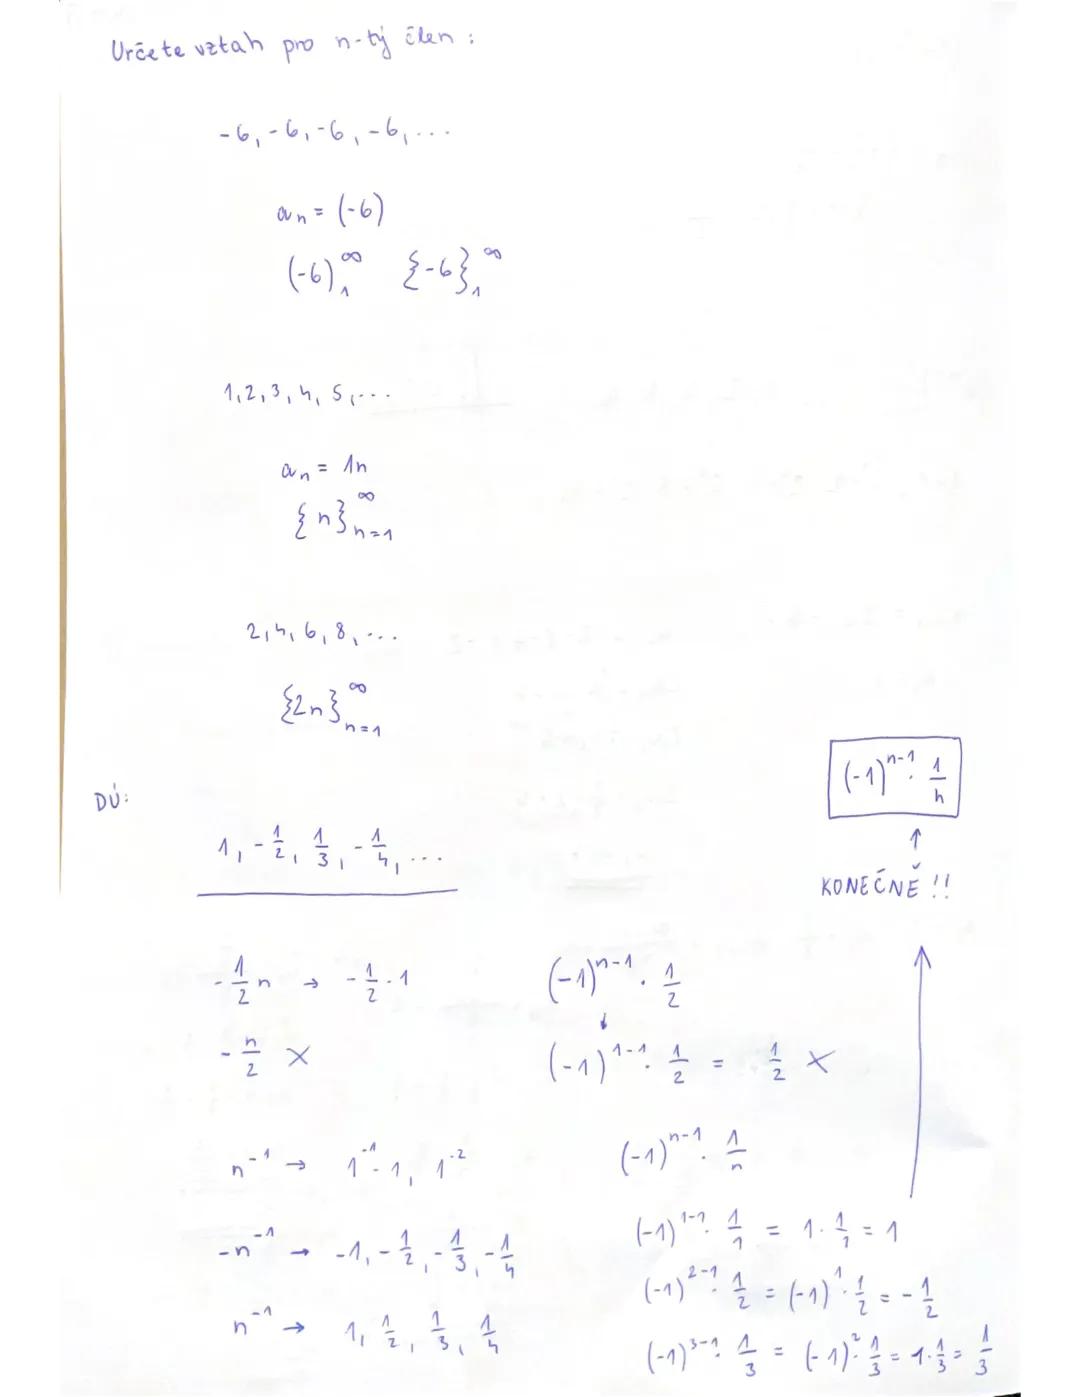 Určete vztah pro n-tý člen :
-6, -6, -6, -6, ...
aₙ = (-6)
(-6)₁^∞ {-6}₁^∞
1, 2, 3, 4, 5, ...
aₙ = 1n
{n}ₙ₌₁^∞
2, 4, 6, 8, ...
{2n}ₙ₌₁^∞
DÚ:
1, -1/2, 1/3, -1/4, ...
(-1)^(n-1) · 1/n
↑
KONEČNĚ !!
-1/2 n → -1/2 · 1
-n/2 ×
n^(-1) → 1^(-1) · 1, 1^(-2)
-n^(-1) → -1, -1/2, -1/3, -1/4
n^(-1) → 1, 1/2, 1/3, 1/4
(-1)^(n-1) · 1/2
↓
(-1)^(1-1) · 1/2 = 1/2 ×
(-1)^(n-1) · 1/n
(-1)^(1-1) · 1/1 = 1 · 1/1 = 1
(-1)^(2-1) · 1/2 = (-1)^1 · 1/2 = -1/2
(-1)^(3-1) · 1/3 = (-1)^2 · 1/3 = 1 · 1/3 = 1/3